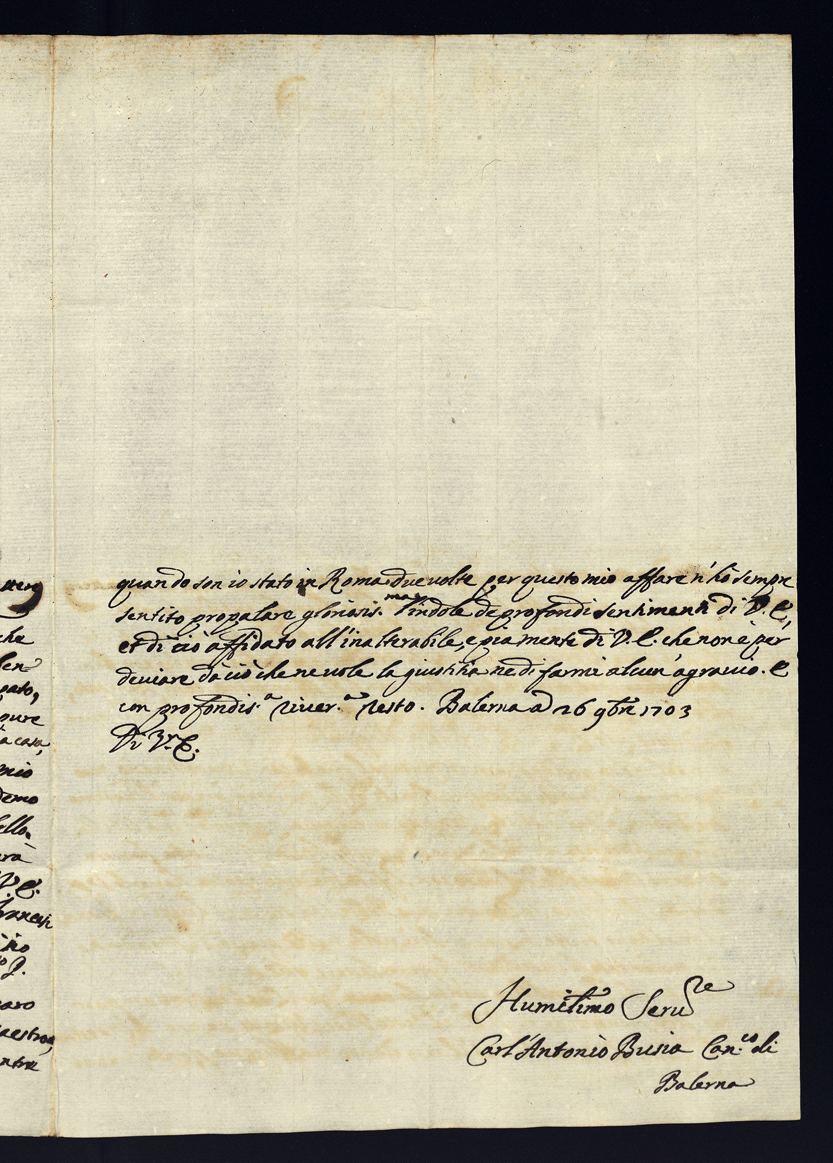 quando son io stato in Roma due volte per questo mio affare n'hò sempre
sentito propalare gloriosis.ma l'indole de profondi sentimenti di V.E,
et di ciò affidato all'inalterabile, e pia mente di V.E. che non è per
deviare da ciò che ne vole la giustitia ne di farmi alcun'agravio. E
con profondis.a river.a resto. Balerna ad 26 9bre 1703
Di V.E.
Humilimo Serv.re
Carl'Antonio Busia Can.co di
Balerna
che
pato,
oure
à casa,
mio
demo
ello.
rà
V.E.
P.
aro
aestro,
ntre